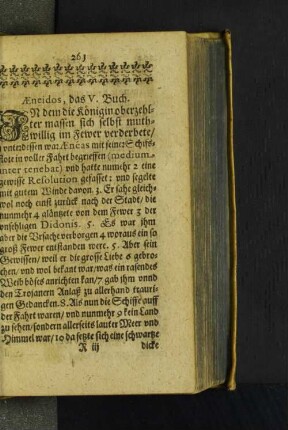 261
Æneidos, das V. Buch.
IN dem die Königin oberzehl-
ter massen sich selbst muth-
willig im Fewer verderbete/
unterdessen war Æneas mit seiner Schifs-
flote in voller Fahrt begrieffen (medium
inter tenebat) und hatte numehr 2 eine
gewisse Resolution gefasset; und segelte
mit gutem Winde davon. 3. Er sahe gleich-
wol noch einst zurück nach der Stadt/ die
nunmehr 4 aläntzete von dem Fewer 3 der
unsehligen Didonis. 5. Es war ihm
aber die Ursache verborgen 4 woraus ein so
groß Fewer entstanden were. 5. Aber sein
Gewissen/ weil er die grosse Liebe 6 gebro-
chen/ und wol bekant war/ was ein rasendes
Weib böses anrichten kan/ 7 gab ihm unnd
den Trojanern Anlaß zu allerhand trauri-
gen Gedancken. 8. Als nun die Schiffe auff
der Fahrt waren/ und nunmehr 9 kein Land
zu sehen/ sondern allerseits lauter Meer und
Himmel war/ 10 da setzte sich eine schwartze
R iij dicke